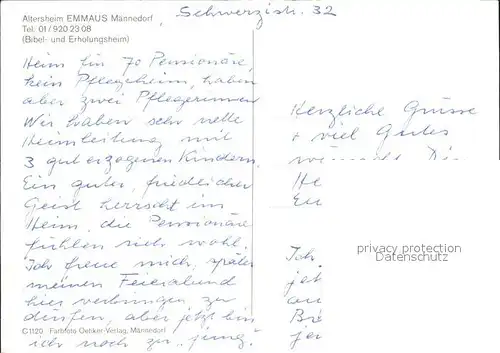 Altersheim EMMAUS Männedorf, Schwerzistr. 32
Tel. 01/920 23 08
(Bibel- und Erholungsheim)
Heim für 70 Pensionäre,
kein Pflegeheim, haben
aber zwei Pflegerinnen
Wir haben sehr nette
Heimleitung mit
3 gut erzogenen Kindern.
Ein guter, friedlicher
Geist herrscht im
Heim, die Pensionäre
fühlen sich wohl.
Ich freue mich, später
meinen Feierabend
hier verbringen zu
dürfen, aber jetzt bin
ich noch zu "jung."
C1120 Farbfoto Oetiker-Verlag, Männedorf
Herzliche Grüsse
+ viel Gutes
He
Eu
Ich
jet
au
Br
jer
privacy protection
Datenschutz